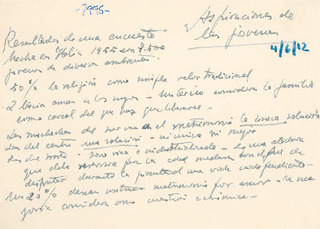 1995
Aspiraciones de
los jóvenes
4/6/62
Resultados de una encuesta
hecha en Italia 1955 con 7.500
jóvenes de diversos ambientes.
50% la religión como simple valor tradicional
2 tercios aman a los suyos - un tercio considera la familia
como carcel de que hay que liberarse -
Las muchachas del sur ven en el matrimonio la única solución
Las del centro una solución - ni única ni mejor
Las del norte - zona rica e industrializada - es una atadura
que debe reservarse para la edad madura después de
disfrutar durante la juventud una vida independiente -
Un 20% desean contraer matrimonio por amor - la
considera como cuestión económica -